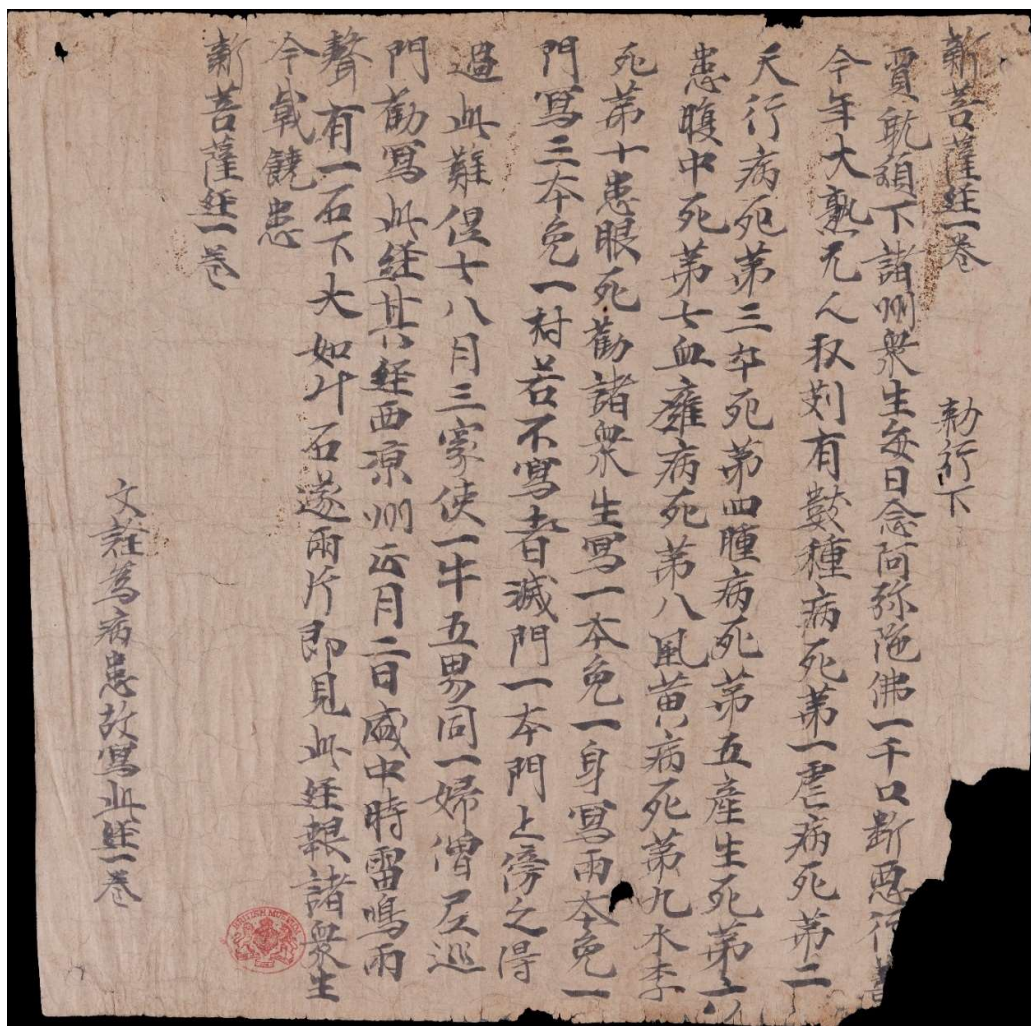 新菩薩經一卷　　勑行下
賈躭頒下諸州衆生每日念阿弥陁佛一千口斷惡行善
今年大熟无人収刈有數種病死第一虐病死第二
天行病死第三卒死第四腫病死第五產生死第六
患腹中死第七血癰病死第八風黃病死第九水李
死第十患眼死勸諸衆生寫一本免一身寫兩本免一
門寫三本免一村若不寫者滅門一本門上傍之得
過此難但七八月三家使一牛五男同一婦僧尼巡
門勸寫此經其經西凉州正月二日盛中時雷鳴雨
聲有一石下大如斗石遂兩片即見此經報諸衆生
今載饒患
新菩薩經一卷
文䇮爲病患故寫此經一卷
BRITISH MUSEUM